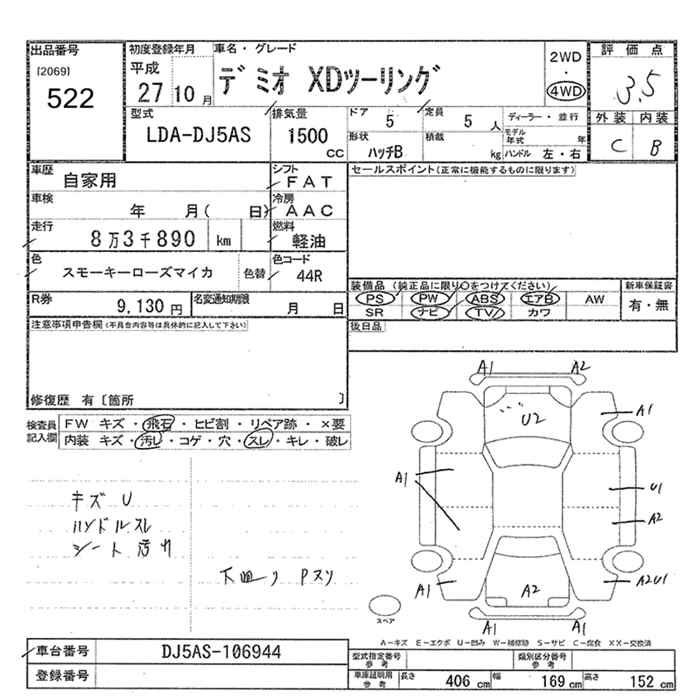 出品番号
[2069]
522
初度登録年月
平成
27 10 月
車名・グレード
デミオ XDツーリング
2WD
・
4WD
評価点
3.5
外装 内装
C B
型式
LDA-DJ5AS
排気量
1500
CC
ドア
5
定員
5 人
形状
ハッチB
積載
kg
ディーラー・並行
モデル年式 年
ハンドル 左・右
車歴
自家用
シフト
FAT
車検
年 月( 日)
冷房
AAC
走行
8万3千890 km
燃料
軽油
色
スモーキーローズマイカ
色替
色コード
44R
R券
9,130円
名変通知期限
月 日
セールスポイント(正常に機能するものに限ります)
装備品(純正品に限り○をつけてください)
PS PW ABS エアB AW
SR ナビ TV カワ
新車保証書
有・無
後日品
注意事項申告欄(不具合内容等は具体的に記入して下さい)
修復歴 有〔箇所 〕
検査員記入欄
FW キズ・飛石・ヒビ割・リペア跡・×要
内装 キズ・汚レ・コゲ・穴・スレ・キレ・破レ
キズ U
ハンドルスレ
シート汚れ
下廻り Pスリ
A1 A2
U2
A1
A1
U1
A2
A1
A2
A2U1
A1 A1
スペア
A-キズ E-エクボ U-凹み W-補修跡 S-サビ C-腐食 XX-交換済
車台番号
DJ5AS-106944
登録番号
型式指定番号
参考
類別区分番号
参考
車庫証明用
参考
長さ 406 cm 幅 169 cm 高さ 152 cm